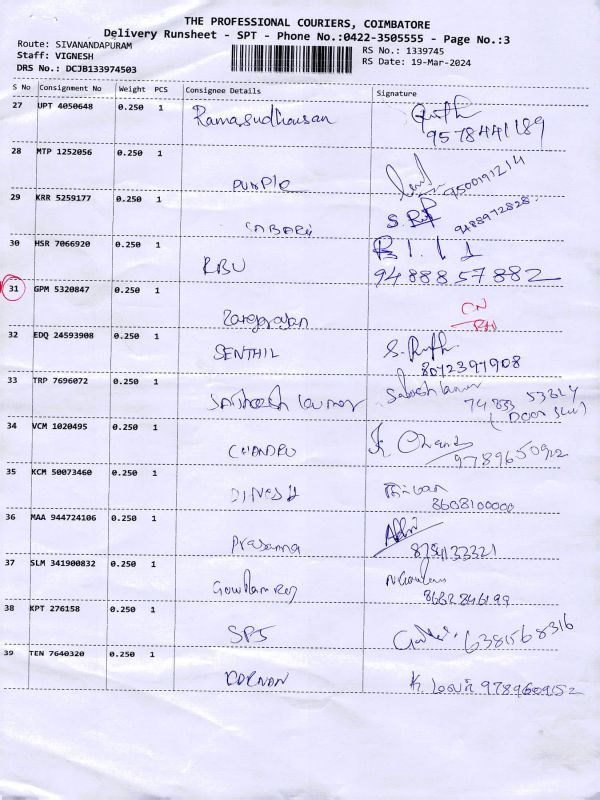 THE PROFESSIONAL COURIERS, COIMBATORE
Delivery Runsheet - SPT - Phone No.:0422-3505555 - Page No.:3
Route: SIVANANDAPURAM
RS No.: 1339745
Staff: VIGNESH
RS Date: 19-Mar-2024
DRS No.: DCJB133974503
S No Consignment No Weight PCS Consignee Details Signature
27 UPT 4050648 0.250 1 Ramasudhousan
9578441189
28 MTP 1252056 0.250 1
PURPLE 9500191214
29 KRR 5259177 0.250 1 S.
SABARI 9488972828
30 HSR 7066920 0.250 1
RBU 9488857882
31 GPM 5320847 0.250 1 CN
Rangarajan
32 EDQ 24593908 0.250 1 S.
SENTHIL 8072397908
33 TRP 7696072 0.250 1
Santhosh kumar (Door
34 VCM 1020495 0.250 1 K
CHANDRU
35 KCM 50073460 0.250 1
DINESH 8608100000
36 MAA 944724106 0.250 1
Prasanna
37 SLM 341900832 0.250 1
Gowtham Raj
38 KPT 276158 0.250 1
SPJ 6381568316
39 TEN 7640320 0.250 1
K